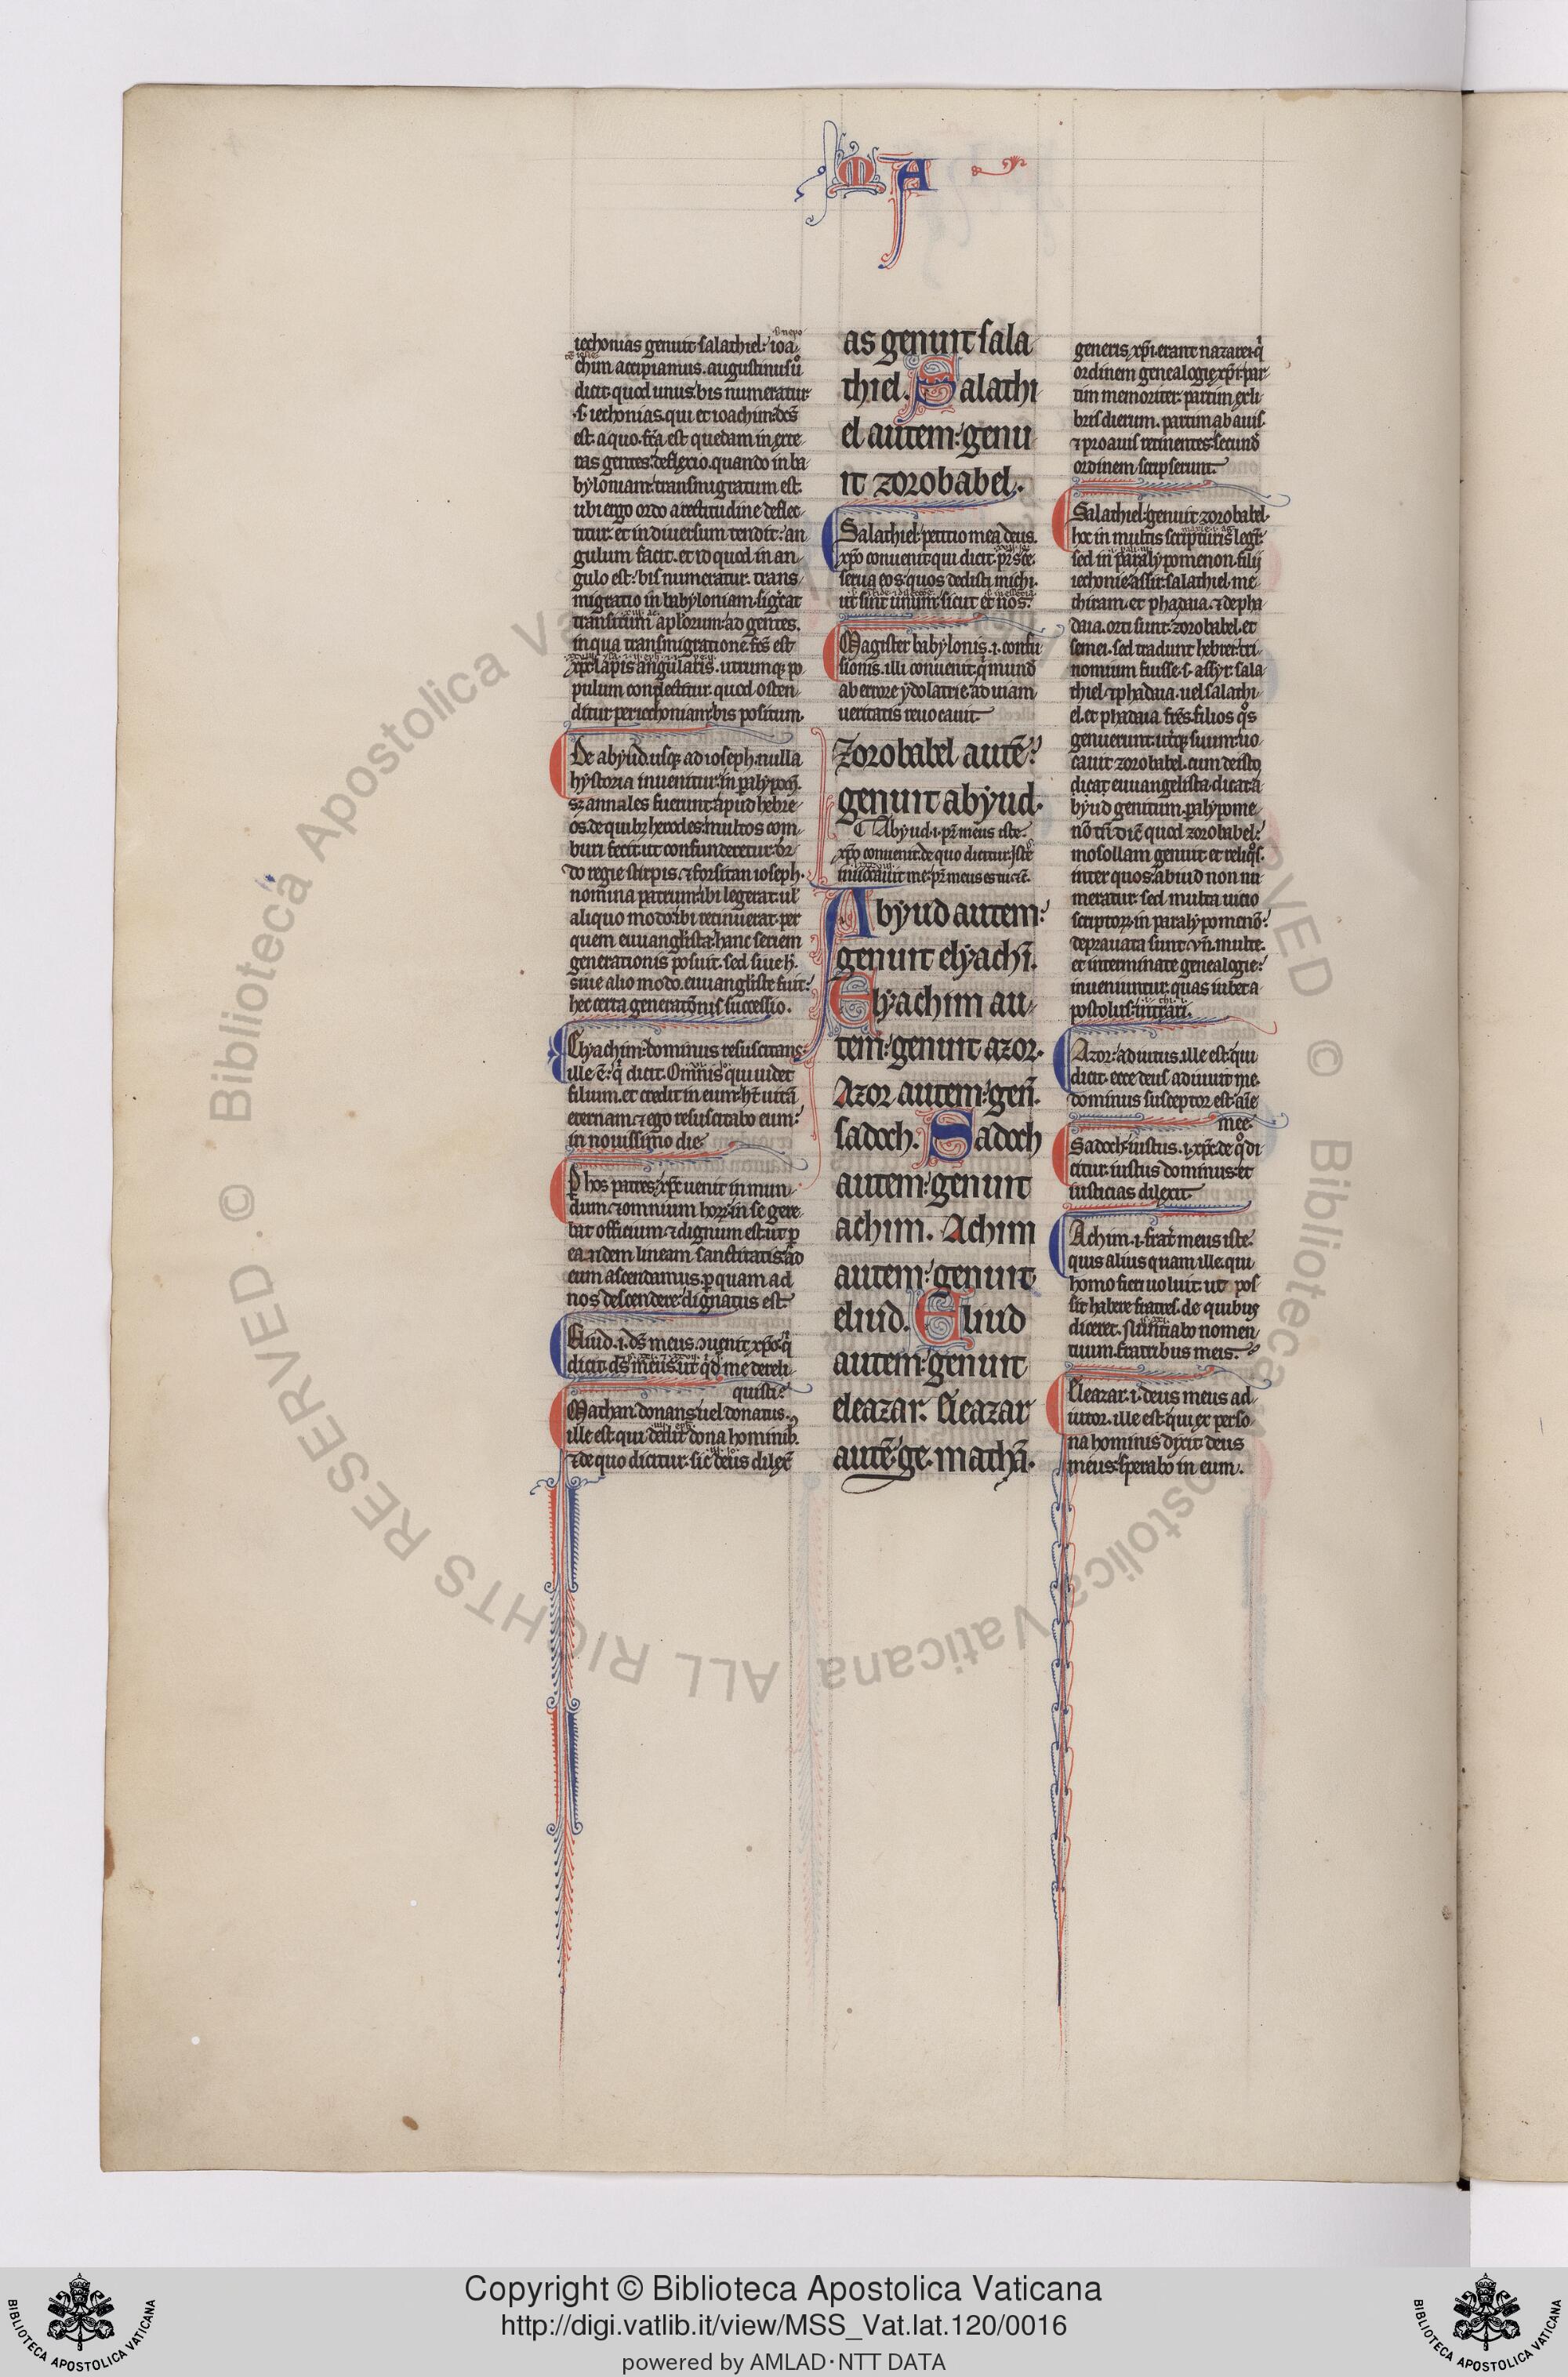 MA
iechonias genuit salathiel: ioa-
chim accipiamus. augustinus ů
dicit quod unus: bis numeratur
.s. iechonias. qui et ioachim: dc̄s
est. a quo. fc̄a est quedam in exte-
ras gentes: deflexio. quando in ba-
byloniam: transmigratum est.
ubi ergo ordo a rectitudine deflec-
titur. et in diuersum tendit: an-
gulum facit. et id quod in an-
gulo est: bis numeratur. trans-
migratio in babyloniam. sigͨcat
transitum aplorum: ad gentes.
in qua transmigratione. fc̄s est
xpc̄ lapis angularis. utrumqꝫ po-
pulum conplectitur. quod osten-
ditur per iechoniam: bis positum.
De abyud. usqꝫ ad ioseph. nulla
hystoria inuenitur: in palypom̄.
sꝫ annales fuerunt: apud hebre-
os. de quibꝫ herodes: multos com-
buri fecit. ut confunderetur: or-
do regie stirpis. ⁊ forsitan ioseph.
nomina patrum: ibi legerat. ul̓
aliquo modo: ibi retinuerat. per
quem euuangelista: hanc seriem
generationis posuit. sed siue h̓.
siue alio modo. euuangeliste fuit:
hec certa generatōnis successio.
Elyachim: dominus resuscitans:
ille ē: q̇ dicit. Omnis qui uidet
filium. et credit in eum: ht̄ uitā
eternam: ⁊ ego resuscitabo eum:
in nouissimo die.
P̱ hos patres: xpc̄ uenit in mun-
dum: ⁊ omnium hoꝝ: in se gere-
bat officium. ⁊ dignum est: ut ꝑ
eandem lineam sanctitatis: ad
eum ascendamus. ꝑ quam ad
nos descendere: dignatus est.
Eliud. i. ds̄ meus. ɔuenit xp̄o: q̇
dicit. ds̄ meus. ut q̇d me dereli-
quisti:
Mathan. donans: uel donatus.
ille est qui dedit dona hominib.
⁊ de quo dicitur. sic deus dilex̄
as genuit sala
thiel. Salathi
el autem: genu
it zorobabel.
Salathiel: petitio mea deus.
xp̄o conuenit. qui dicit. pr̄ sc̄e.
serua eos: quos dedisti michi.
ut sint unum: sicut et nos.
Magister babylonis. i. confu-
sionis. illi conuenit: q̇ mund̄
ab errore ydolatrie: ad uiam
ueritatis reuocauit.
Zorobabel autē:
genuit abyud.
Abyud. i. pr̄ meus iste.
xp̄o conuenit. de quo dicitur. Jste
inuocauit me: pr̄ meus es tu. ⁊c̄.
Abyud autem:
genuit elyachī.
Elyachim au-
tem: genuit azor.
Azor autem: gen̄.
sadoch. Sadoch
autem: genuit
achim. Achim
autem: genuit
eliud. Eliud
autem: genuit
eleazar. Eleazar
autē: ge. mathā.
generis xp̄i. erant nazarei: q̇
ordinem genealogie xp̄i. par-
tim memoriter. partim ex li-
bris dierum. partim ab auis.
⁊ proauis retinentes: secund̄
ordinem scripserunt.
Salathiel: genuit zorobabel.
hoc in multis scripturis leg͛.
sed in paralypomenon. filij
iechonie: assir. salathiel. me-
chiram. et phadaia. ⁊ de pha
daia. orti sunt: zorobabel. et
semei. sed tradunt hebrei: tri-
nomium fuisse. s. assyr. sala-
thiel. ⁊ phadaia. uel salathi-
el. et phadaia. fr̄es. filios q̊s
genuerunt. ut̓qꝫ suum: uo-
cauit zorobabel. cum de isto
dicat euuangelista. dicat: a
byud genitum. palypome-
nō tn̄ dic̄ quod zorobabel:
mosollam genuit et reliq̊s.
inter quos: abiud non nu-
meratur. sed multa uicio
scriptoꝝ. in paralypomenō:
deprauata sunt. vn̄. multe.
et interminate genealogie:
inueniuntur. quas iubet a-
postolus: uitari.
Azor: adiutus. ille est. qui
dicit. ecce deus adiuuit me.
dominus susceptor est: aīe
mee.
Sadoch: iustus. i. xpc̄. de q̊ di-
citur. iustus dominus: et
iusticias dilexit.
Achim. i. frat̓ meus iste.
quis alius quam ille. qui
homo fieri uoluit: ut pos-
sit habere fratres. de quibus
diceret. Nuntiabo nomen
tuum. fratribus meis.
Eleazar. i. deus meus ad-
iutor. ille est: qui ex perso-
na hominis dixit: deus
meus: sperabo in eum.
Copyright © Biblioteca Apostolica Vaticana
http://digi.vatlib.it/view/MSS_Vat.lat.120/0016
powered by AMLAD·NTT DATA
BIBLIOTECA APOSTOLICA VATICANA
BIBLIOTECA APOSTOLICA VATICANA